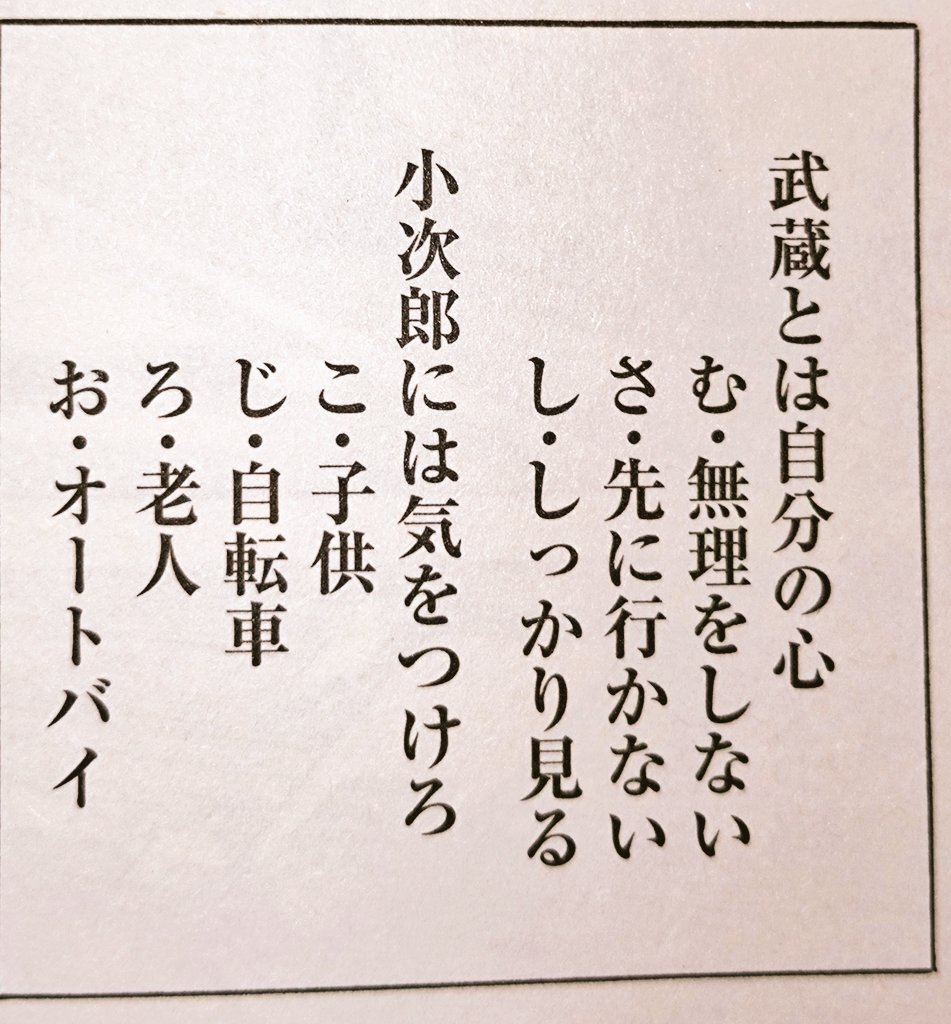 武蔵とは自分の心
む・無理をしない
さ・先に行かない
し・しっかり見る
小次郎には気をつけろ
こ・子供
じ・自転車
ろ・老人
お・オートバイ